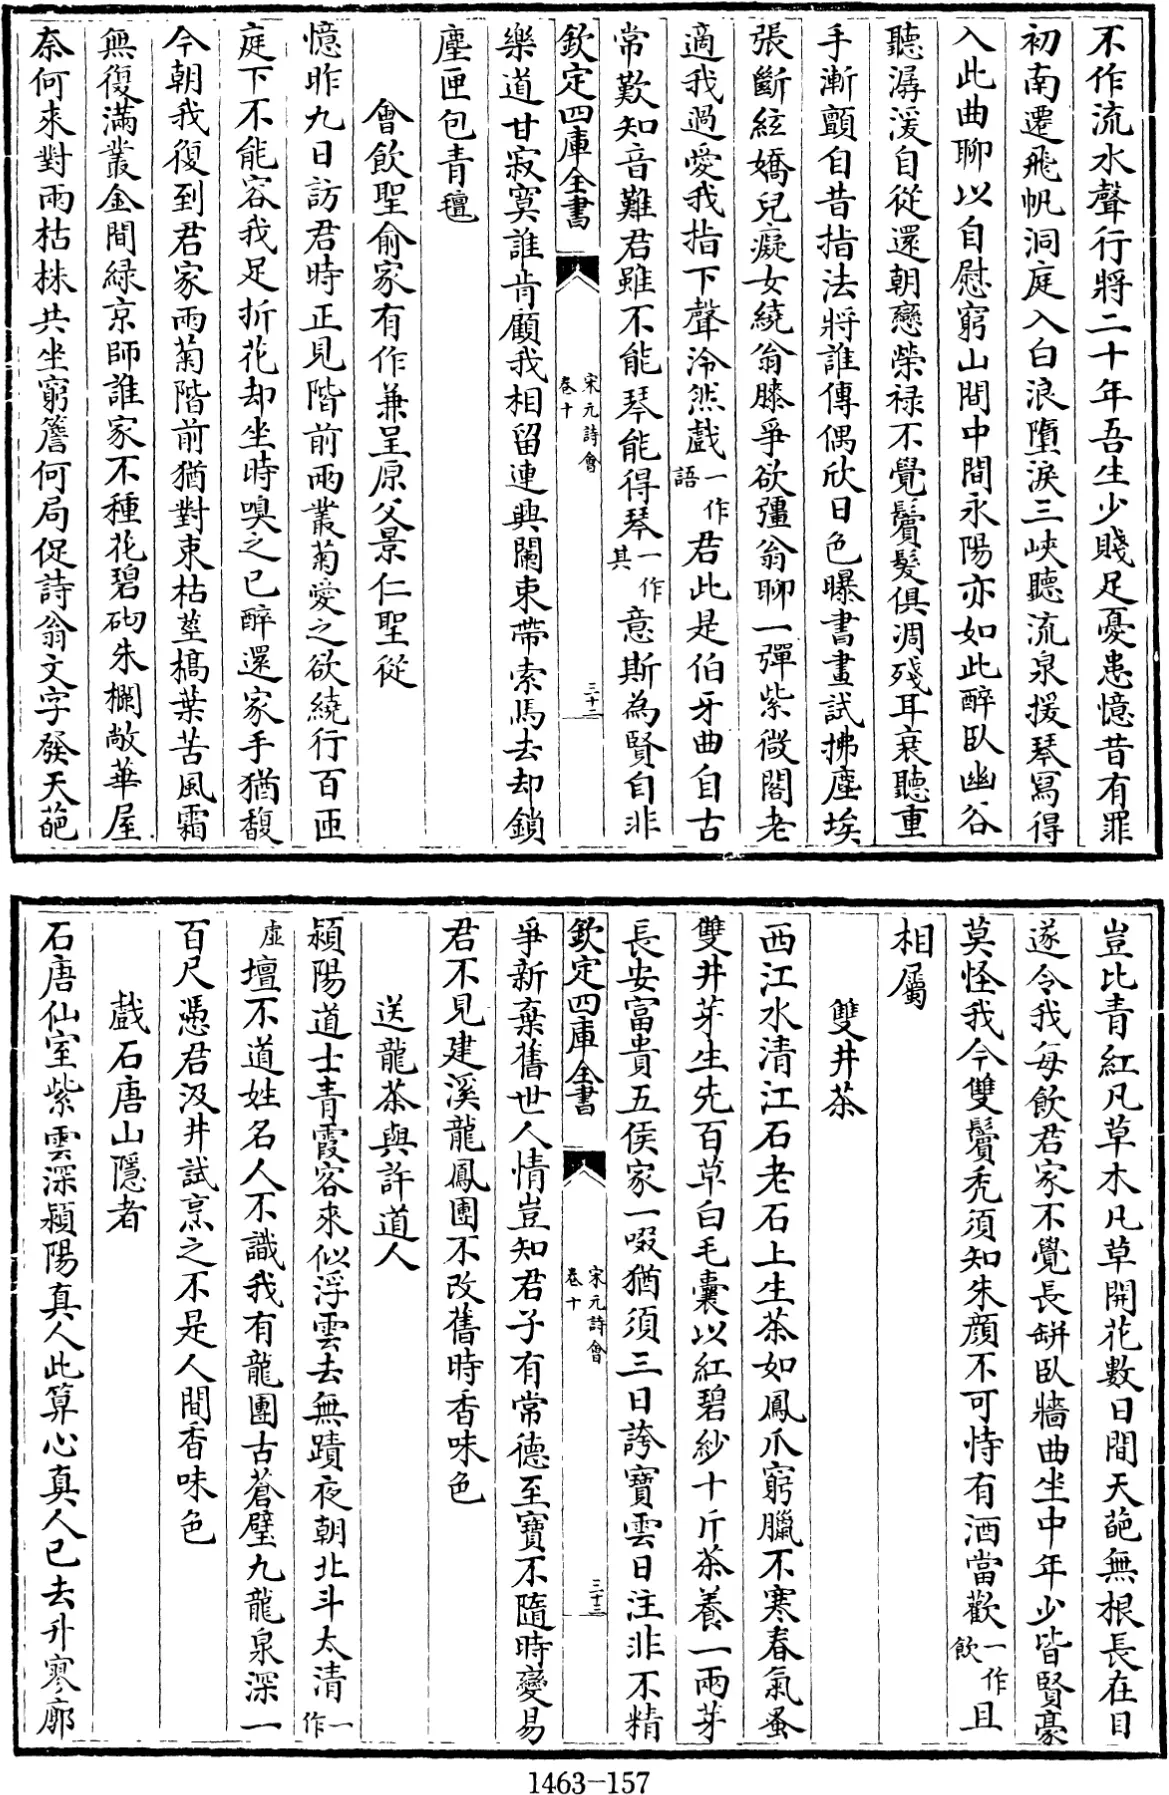 不作流水聲行將二十年吾生少賤足憂患憶昔有罪
初南遷飛帆洞庭入白浪墮淚三峽聽流泉援琴寫得
入此曲聊以自慰窮山間中間永陽亦如此醉臥幽谷
聽潺湲自從還朝戀榮祿不覺鬢髮俱凋殘耳衰聽重
手漸顫自昔指法將誰傳偶欣日色曝書畫試拂塵埃
張斷絃嬌兒癡女繞翁膝爭欲彊翁聊一彈紫微閣老
適我過愛我指下聲泠然戲一作語君此是伯牙曲自古
常歎知音難君雖不能琴能得琴一作其意斯為賢自非
欽定四庫全書 宋元詩會 卷十 三十二
樂道甘寂寞誰肯顧我相留連興闌束帶索馬去却鎖
塵匣包青氊
會飲聖俞家有作兼呈原父景仁聖從
憶昨九日訪君時正見階前兩叢菊愛之欲繞行百匝
庭下不能容我足折花却坐時嗅之已醉還家手猶馥
今朝我復到君家兩菊階前猶對束枯莖槁葉苦風霜
無復滿叢金間綠京師誰家不種花碧砌朱欄敞華屋
奈何來對兩枯株共坐窮簷何局促詩翁文字發天葩
豈比青紅凡草木凡草開花數日間天葩無根長在目
遂令我每飲君家不覺長缾臥牆曲坐中年少皆賢豪
莫怪我今雙鬢禿須知朱顏不可恃有酒當歡一作飲且
相屬
雙井茶
西江水清江石老石上生茶如鳳爪窮臘不寒春氣蚤
雙井芽生先百草白毛囊以紅碧紗十斤茶養一兩芽
長安富貴五侯家一啜猶須三日誇寶雲日注非不精
欽定四庫全書 宋元詩會 卷十 三十三
爭新棄舊世人情豈知君子有常德至寶不隨時變易
君不見建溪龍鳳團不改舊時香味色
送龍茶與許道人
潁陽道士青霞客來似浮雲去無蹟夜朝北斗太清一作
虛壇不道姓名人不識我有龍團古蒼璧九龍泉深一
百尺憑君汲井試烹之不是人間香味色
戲石唐山隱者
石唐仙室紫雲深潁陽真人此算心真人已去升寥廓
1463-157